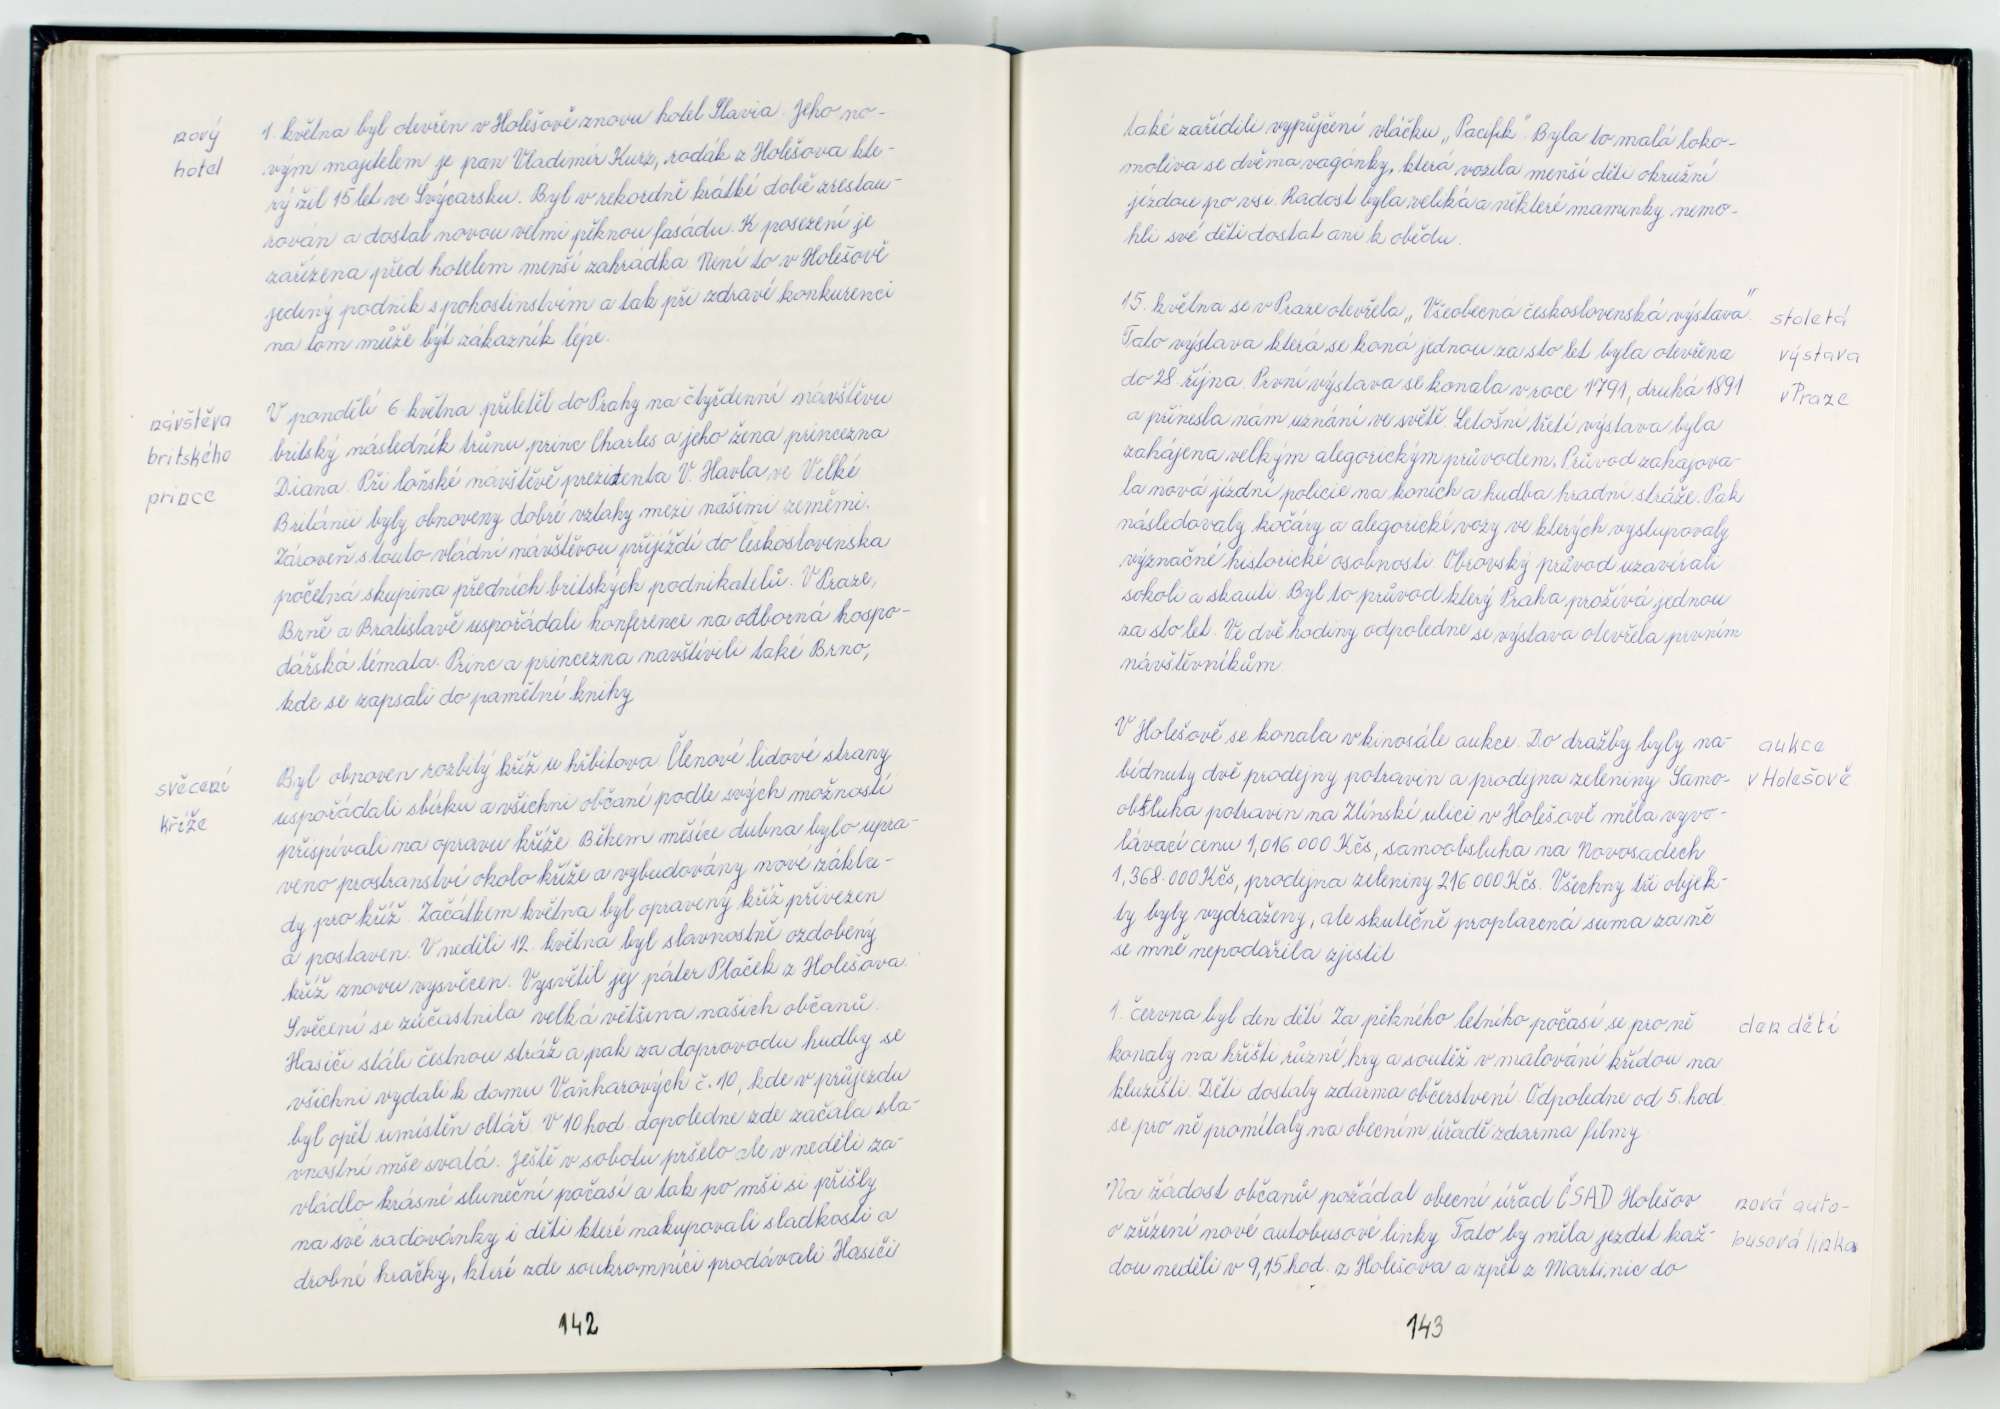 nový
hotel
1. května byl otevřen v Holešově znovu hotel Slavia. Jeho no-
vým majitelem je pan Vladimír Kurz, rodák z Holešova kte-
rý žil 15 let ve Švýcarsku. Byl v rekordně krátké době zrestau-
rován a dostal novou velmi pěknou fasádu. K posezení je
zařízena před hotelem menší zahrádka. Není to v Holešově
jediný podnik s pohostinstvím a tak při zdravé konkurenci
na tom může být zákazník lépe.
návštěva
britského
prince
V pondělí 6 května přiletěl do Prahy na čtyřdenní návštěvu
britský následník trůnu princ Charles a jeho žena princezna
Diana. Při loňské návštěvě prezidenta V. Havla ve Velké
Británii byly obnoveny dobré vztahy mezi našimi zeměmi.
Zároveň s touto vládní návštěvou přijíždí do Československa
početná skupina předních britských podnikatelů. V Praze,
Brně a Bratislavě uspořádali konference na odborná hospo-
dářská témata. Princ a princezna navštívili také Brno,
kde se zapsali do pamětní knihy
svěcení
kříže
Byl obnoven rozbitý kříž u hřbitova. Členové lidové strany
uspořádali sbírku a všichni občané podle svých možností
přispívali na opravu kříže. Během měsíce dubna bylo upra-
veno prostranství okolo kříže a vybudovány nové zákla-
dy pro kříž. Začátkem května byl opravený kříž přivezen
a postaven. V neděli 12. května byl slavnostně ozdobený
kříž znovu vysvěcen. Vysvětil jej páter Ptáček z Holešova.
Svěcení se zúčastnila velká většina našich občanů.
Hasiči stáli čestnou stráž a pak za doprovodu hudby se
všichni vydali k domu Vaňharových č. 10, kde v průjezdu
byl opět umístěn oltář. V 10 hod. dopoledne zde začala sla-
vnostní mše svatá. Ještě v sobotu pršelo ale v neděli za-
vládlo krásné sluneční počasí a tak po mši si přišly
na své radovánky i děti které nakupovali sladkosti a
drobné hračky, které zde soukromníci prodávali. Hasiči
142
také zařídili vypůjčení vláčku „Pacifik". Byla to malá loko-
motiva se dvěma vagónky, která vozila menší děti okružní
jízdou po vsi. Radost byla veliká a některé maminky nemo-
hli své děti dostat ani k obědu.
15. května se v Praze otevřela „Všeobecná československá výstava".
Tato výstava která se koná jednou za sto let byla otevřena
do 28 října. První výstava se konala v roce 1791, druhá 1891
a přinesla nám uznání ve světě. Letošní třetí výstava byla
zahájena velkým alegorickým průvodem. Průvod zahajova-
la nová jízdní policie na koních a hudba hradní stráže. Pak
následovaly kočáry a alegorické vozy ve kterých vystupovaly
význačné historické osobnosti. Obrovský průvod uzavírali
sokoli a skauti. Byl to průvod který Praha prožívá jednou
za sto let. Ve dvě hodiny odpoledne se výstava otevřela prvním
návštěvníkům.
stoletá
výstava
v Praze
V Holešově se konala v kinosále aukce. Do dražby byly na-
bídnuty dvě prodejny potravin a prodejna zeleniny. Samo-
obsluha potravin na Zlínské ulici v Holešově měla vyvo-
lávací cenu 1,016 000 Kčs, samoobsluha na Novosadech
1,368.000 Kčs, prodejna zeleniny 216 000 Kčs. Všechny tři objek-
ty byly vydraženy, ale skutečně proplacená suma za ně
se mně nepodařila zjistit
aukce
v Holešově
1. června byl den dětí. Za pěkného letního počasí se pro ně
konaly na hřišti různé hry a soutěž v malování křídou na
kluzišti. Děti dostaly zdarma občerstvení. Odpoledne od 5. hod.
se pro ně promítaly na obecním úřadě zdarma filmy.
den dětí
Na žádost občanů požádal obecní úřad ČSAD Holešov
o zřízení nové autobusové linky. Tato by měla jezdit kaž-
dou neděli v 9,15 hod. z Holešova a zpět z Martinic do
nová auto-
busová linka
143